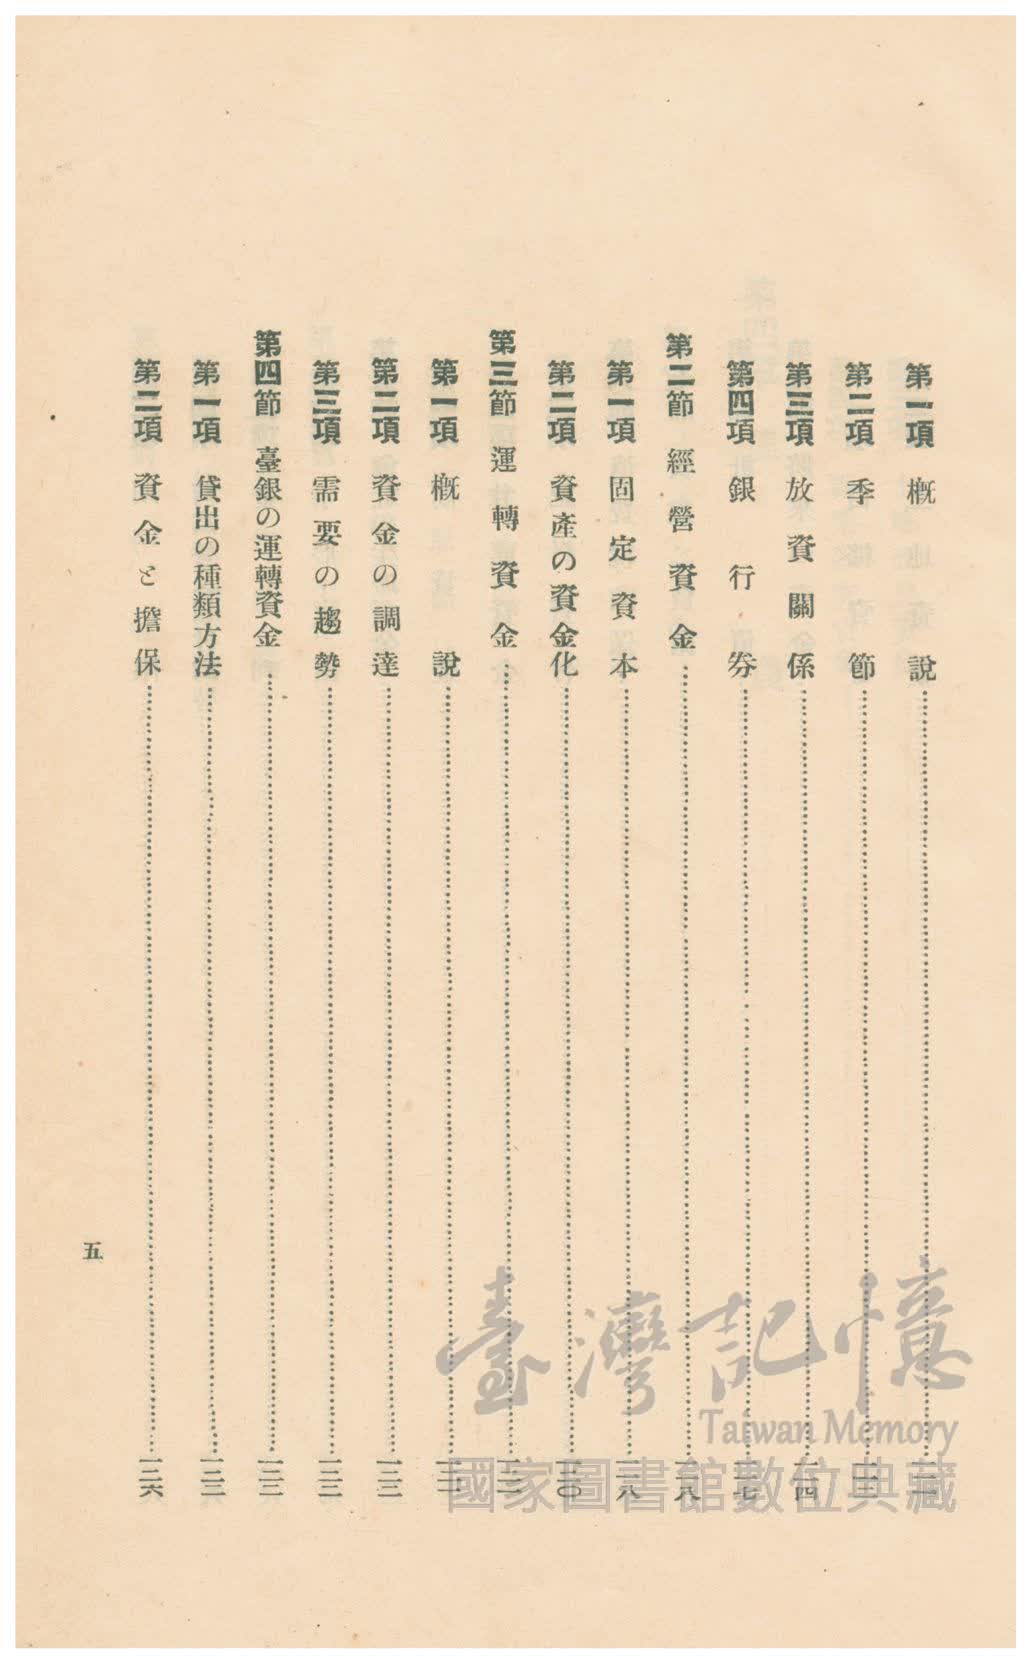 第一項 概說
第二項 季節
第三項 放資關係……一一四
第四項 銀行券……一一七
第二節 經營資金……一一八
第一項 固定資本……一一八
第二項 資產の資金化……一二〇
第三節 運轉資金
第一項 概說
第二項 資金の調達
第三項 需要の趨勢
第四節 臺銀の運轉資金
第一項 貸出の種類方法
第二項 資金と擔保……一二六
五
臺灣記憶
Taiwan Memory
國家圖書館數位典藏